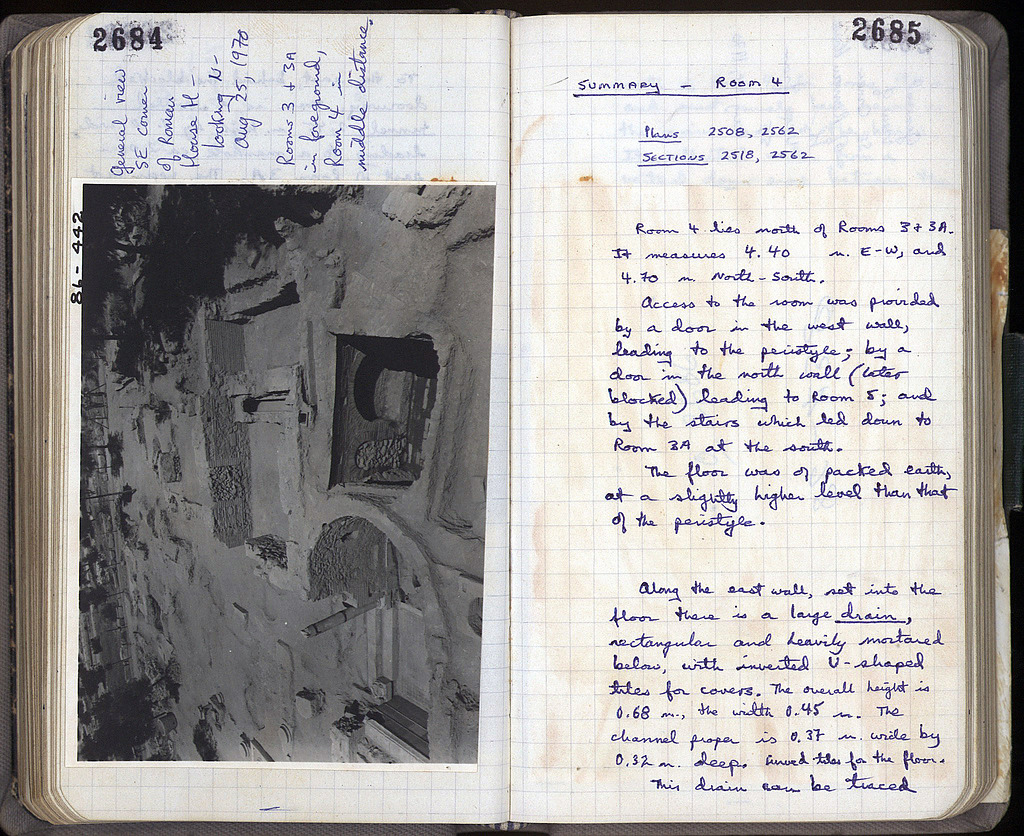 2684
General view
SE corner
of Roman
House H -
looking N -
Aug 25, 1970
Rooms 3 + 3A
in foreground,
Room 4 in
middle distance.
86-442
2685
SUMMARY - ROOM 4
PLANS 2508, 2562
SECTIONS 2518, 2562
Room 4 lies north of Rooms 3 + 3A.
It measures 4.40 m. E-W, and
4.70 m. North-South.
Access to the room was provided
by a door in the west wall,
leading to the peristyle; by a
door in the north wall (later
blocked) leading to Room 5; and
by the stairs which led down to
Room 3A at the south.
The floor was of packed earth,
at a slightly higher level than that
of the peristyle.
Along the east wall, set into the
floor there is a large drain,
rectangular and heavily mortared
below, with inverted U-shaped
tiles for covers. The overall height is
0.68 m., the width 0.45 m. The
channel proper is 0.37 m. wide by
0.32 m. deep. Curved tiles for the floor.
This drain can be traced